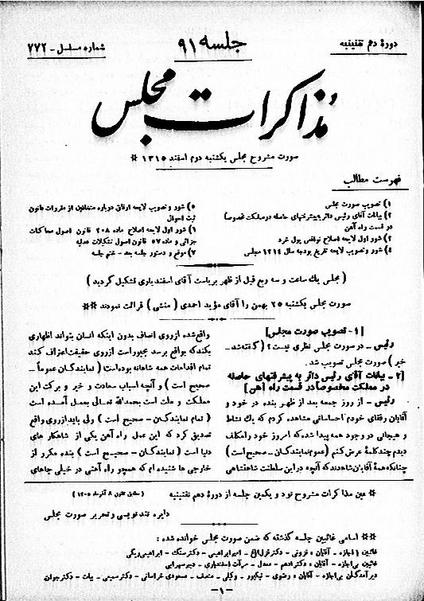 دورهٔ دهم تقنینیه
جلسه ۹۱
شماره مسلسل - ۷۷۲
مذاکرات مجلس
صورت مشروح مجلس یکشنبه دوم اسفند ۱۳۱۵ *
فهرست مطالب
۱) تصویب صورت مجلس
۲) بیانات آقای رئیس دائر بپیشرفتهای حاصله در مملکت مخصوصاً
در قسمت راه آهن
۳) شور اول لایحه اصلاح نواقص پول خرد
۴) شور و تصویب لایحه تفریغ بودجه سال ۱۳۱۴ مجلس
۵) شور و تصویب لایحه ارفاق درباره متخلفین از مقررات قانون
ثبت احوال
۶) شور اول لایحه اصلاح ماده ۲۰۸ قانون اصول محاکمات
جزائی و ماده ۵۷ قانون اصول تشکیلات عدلیه
۷) موقع و دستور جلسه بعد - ختم جلسه
( مجلس یک ساعت و سه ربع قبل از ظهر بریاست آقای اسفندیاری تشکیل گردید )
صورت مجلس یکشنبه ۲۵ بهمن را آقای مؤید احمدی ( منشی ) قرائت نمودند **
[ ۱ - تصویب صورت مجلس ]
رئیس - در صورت مجلس نظری نیست ؟ ( گفته شد -
خیر ) صورت مجلس تصویب شد.
[ ۲ - بیانات آقای رئیس دائر به پیشرفتهای حاصله
در مملکت مخصوصاً در قسمت راه آهن ]
رئیس - از روز جمعه بعد از ظهر بنده در خود و
آقایان رفقای خودم احساساتی مشاهده کردم که یک نشاط
و هیجانی در وجود همه پیدا شده که امروز خود را مکلف
دیدم چند کلمه عرض کنم ( عموم نمایندگان - صحیح است )
چنانکه همهٔ آقایان شاهدند که آنچه در این سلطنت شاهنشاهی
واقع شده از روی انصاف بدون اینکه انسان بتواند اظهاری
بکند که بواقع برسد مجبور است از روی حقیقت اعتراف کند
تمام اقدامات همه شاهانه بوده است ( نمایندگان عموماً -
صحیح است ) و آنچه اسباب سعادت و خیر و برکت این
مملکت و ملت است بحمدالله تعالی بعمل آمده است
( تمام نمایندگان - صحیح است ) ولی باید از روی واقع
تصدیق کرد که این عمل راه آهن یکی از شاهکار های
دنیا است ( نمایندگان - صحیح است ) بنده مکرر از
خارجی ها شنیده ام که همچو راه آهنی در خیلی جاهای
* عین مذاکرات مشروح نود و یکمین جلسه از دورهٔ دهم تقنینیه
دایره تند نویسی و تحریر صورت مجلس
** اسامی غائبین جلسه گذشته که ضمن صورت مجلس خوانده شده :
- ۱ -